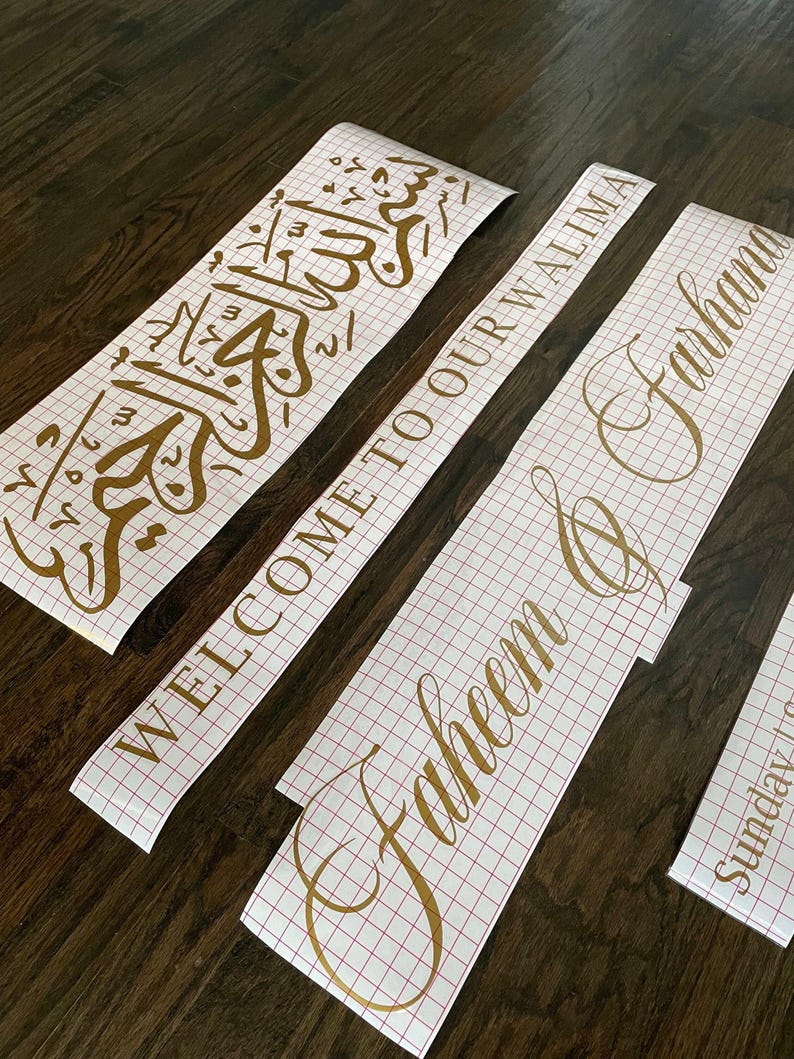 بِسْمِ اللَّهِ الرَّحْمَٰنِ الرَّحِيمِ
WELCOME TO OUR WALIMA
Faheem & Farhana
Sunday |